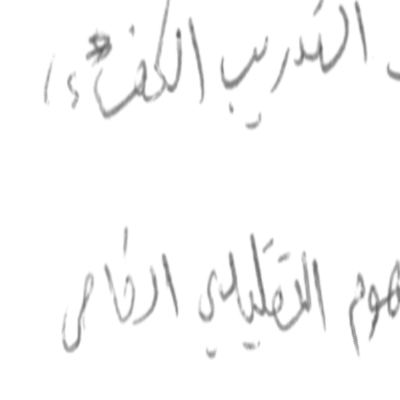 التدريب الكفء،
هوم التقليدي الخاص